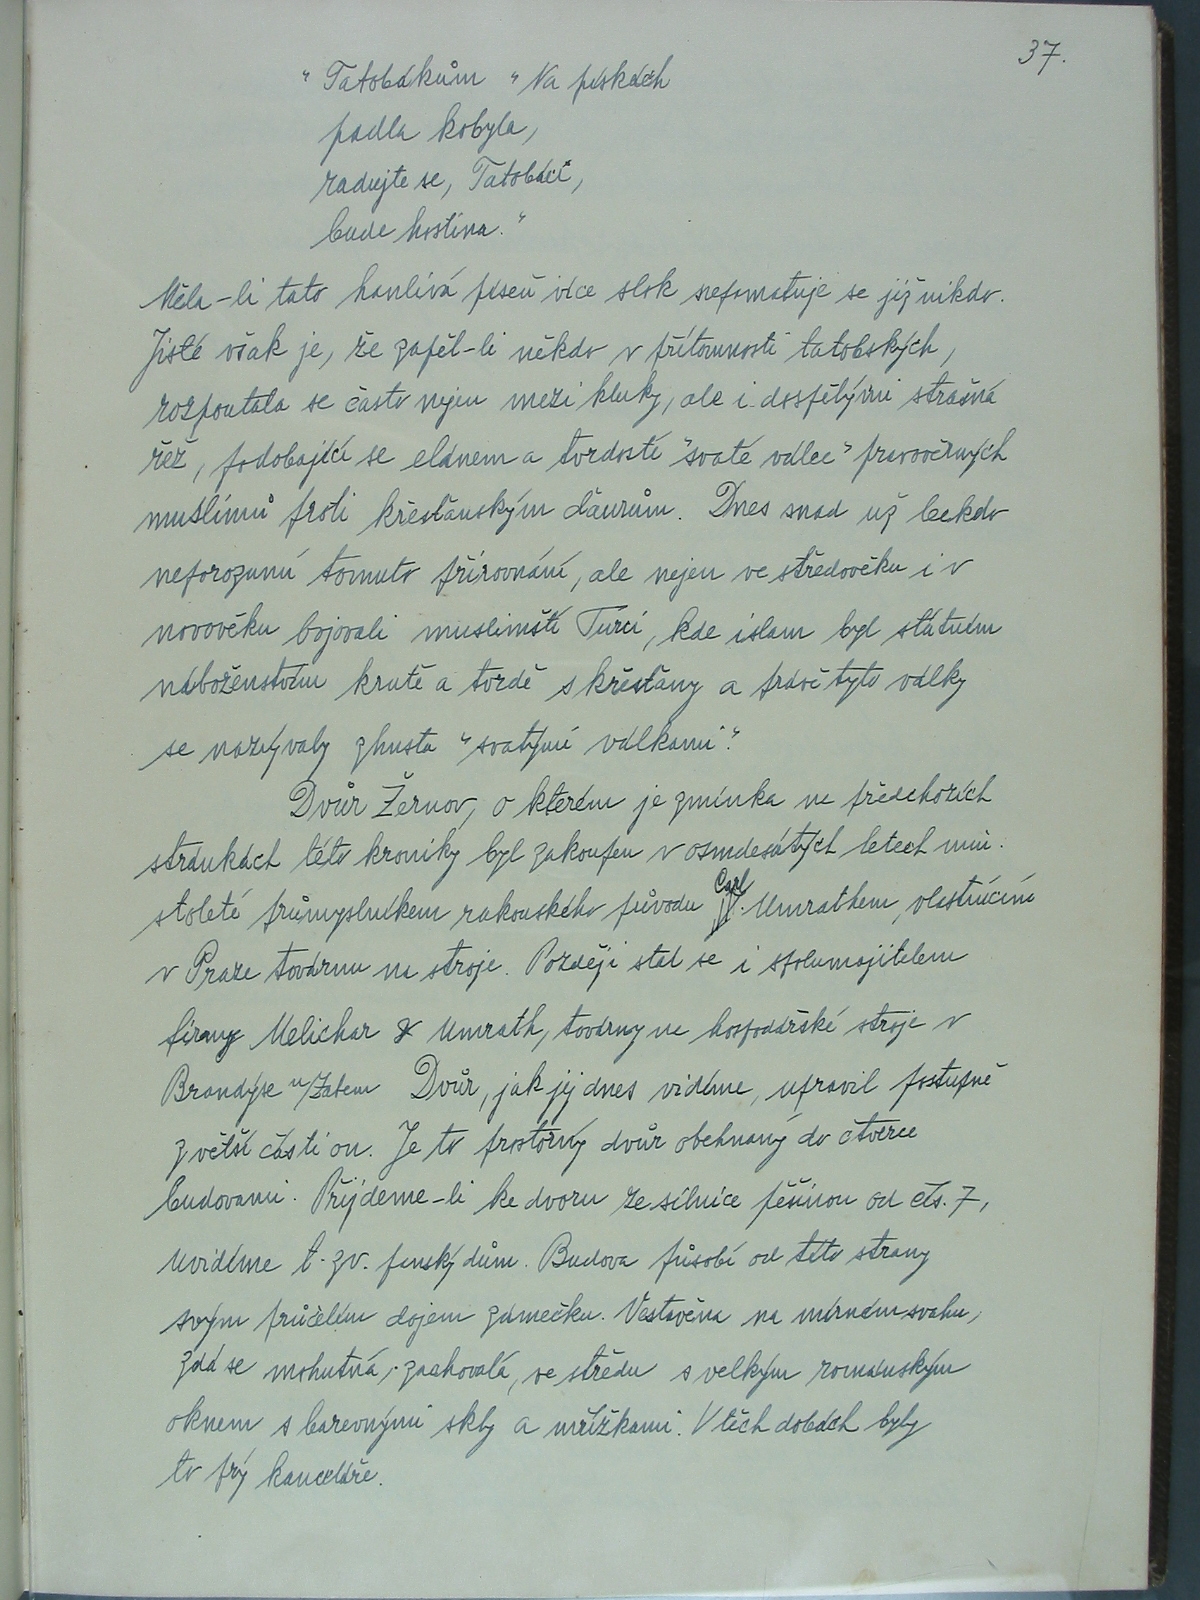 37.
„ Tatobákům „ Na pískách
padla kobyla,
radujte se, Tatobáci,
bude hostina."
Měla-li tato hanlivá píseň více slok nepamatuje se již nikdo.
Jisté však je, že zapěl-li někdo v přítomnosti tatobských,
rozpoutala se často nejen mezi kluky, ale i dospělými strašná
řež, podobající se elánem a tvrdostí "svaté válce" pravověrných
muslimů proti křesťanským ďaurům. Dnes snad už leckdo
neporozumí tomuto přirovnání, ale nejen ve středověku i v
novověku bojovali muslimští Turci, kde islam byl státním
náboženstvím krutě a tvrdě s křesťany a právě tyto války
se nazývaly zhusta "svatými válkami".
Dvůr Žernov, o kterém je zmínka na předchozích
stránkách této kroniky byl zakoupen v osmdesátých letech min.
století průmyslníkem rakouského původu Carl Umrathem, vlastnícím
v Praze továrnu na stroje. Později stal se i spolumajitelem
firmy Melichar & Umrath, továrny na hospodářské stroje v
Brandýse n/Labem Dvůr, jak jej dnes vidíme, upravil postupně
z větší části on. Je to prostorný dvůr obehnaný do čtverce
budovami. Přijdeme-li ke dvoru ze silnice pěšinou od čís. 7,
uvidíme t. zv. panský dům. Budova působí od této strany
svým průčelím dojem zámečku. Vestavěna na mírném svahu,
zdá se mohutná, zachovalá, ve středu s velkým románským
oknem s barevnými skly a mřížkami. V těch dobách byly
to prý kanceláře.